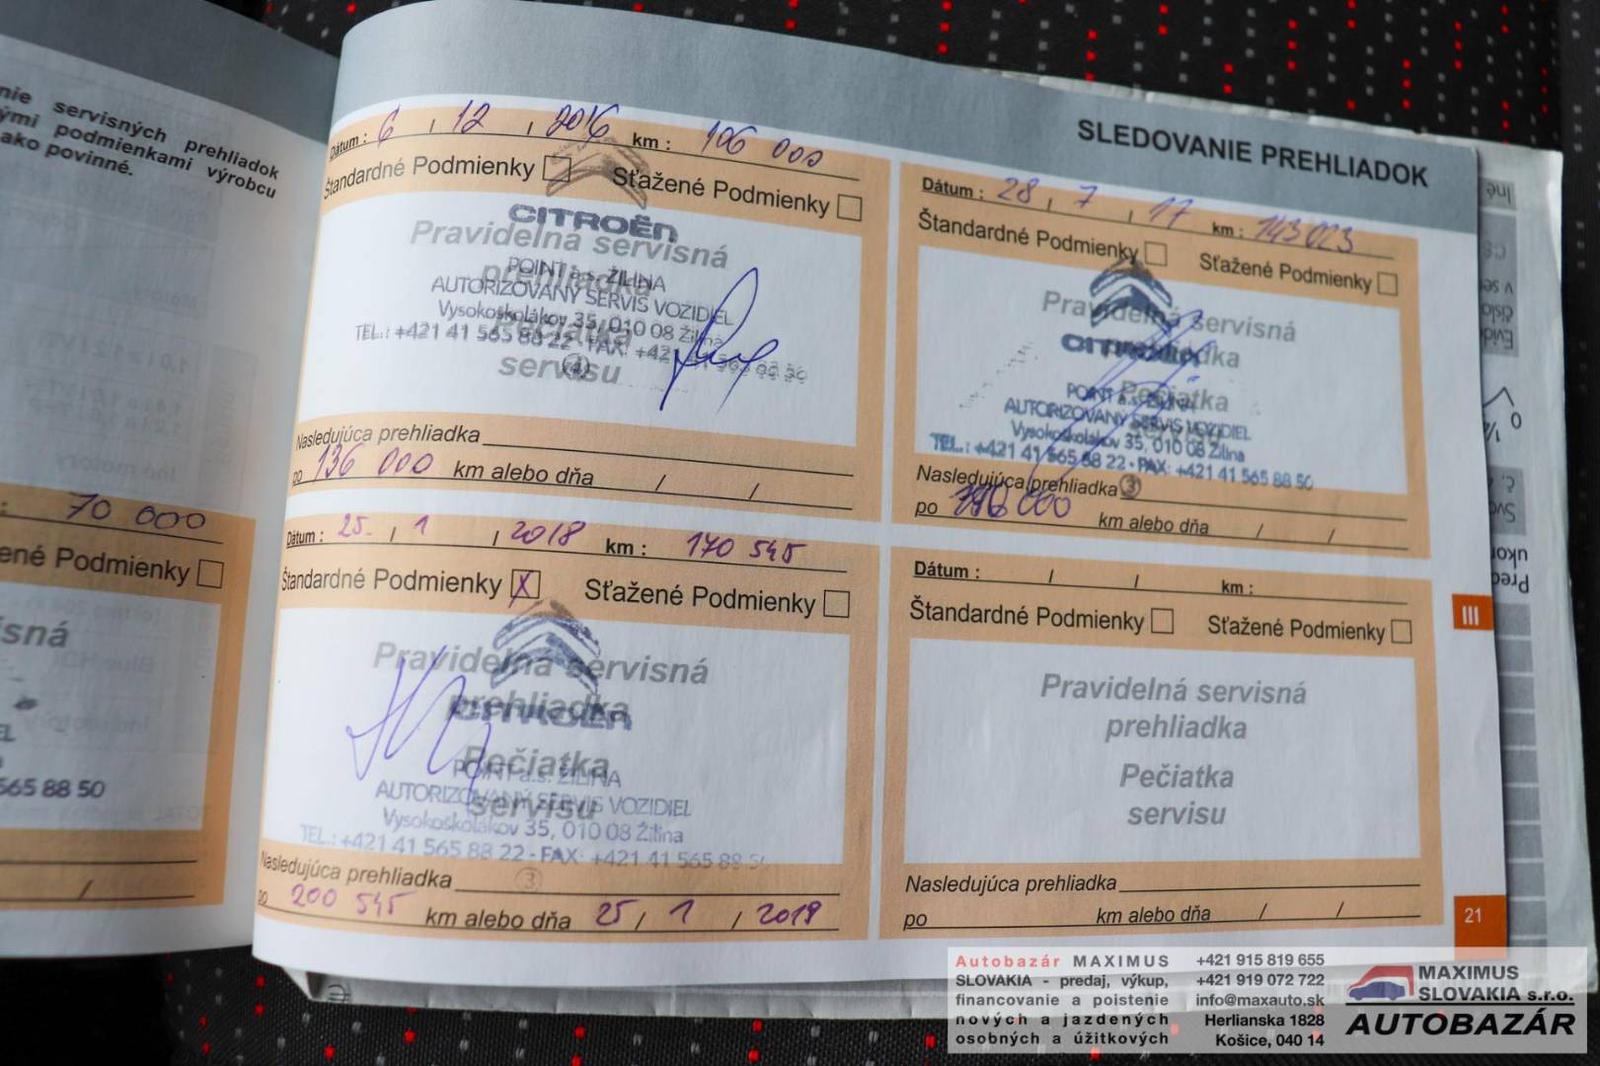 nie servisných prehliadok
ými podmienkami výrobcu
ako povinné.
70 000
ené Podmienky
sná
565 88 50
SLEDOVANIE PREHLIADOK
Dátum : 6 / 12 / 2016 km : 106 000
Štandardné Podmienky Sťažené Podmienky
Pravidelná servisná
prehliadka
Pečiatka
servisu
CITROËN
POINT a.s. ŽILINA
AUTORIZOVANÝ SERVIS VOZIDIEL
Vysokoškolákov 35, 010 08 Žilina
TEL.: +421 41 565 88 22 - FAX: +421 41 565 88 50
Nasledujúca prehliadka
po 136 000 km alebo dňa / /
Dátum : 28 / 7 / 17 km : 143 023
Štandardné Podmienky Sťažené Podmienky
Pravidelná servisná
prehliadka
Pečiatka
CITROËN
POINT a.s. ŽILINA
AUTORIZOVANÝ SERVIS VOZIDIEL
Vysokoškolákov 35, 010 08 Žilina
TEL.: +421 41 565 88 22 - FAX: +421 41 565 88 50
Nasledujúca prehliadka 3
po 000 km alebo dňa / /
Dátum : 25. / 1 / 2018 km : 170 545
Štandardné Podmienky X Sťažené Podmienky
Pravidelná servisná
prehliadka
Pečiatka
servisu
CITROËN
POINT a.s. ŽILINA
AUTORIZOVANÝ SERVIS VOZIDIEL
Vysokoškolákov 35, 010 08 Žilina
TEL.: +421 41 565 88 22 - FAX: +421 41 565 88 5
Nasledujúca prehliadka 3
po 200 545 km alebo dňa 25 / 1 / 2019
Dátum : / / km :
Štandardné Podmienky Sťažené Podmienky
Pravidelná servisná
prehliadka
Pečiatka
servisu
Nasledujúca prehliadka
po km alebo dňa / /
III
21
Autobazár MAXIMUS
SLOVAKIA - predaj, výkup,
financovanie a poistenie
nových a jazdených
osobných a úžitkových
+421 915 819 655
+421 919 072 722
info@maxauto.sk
Herlianska 1828
Košice, 040 14
MAXIMUS
SLOVAKIA s.r.o.
AUTOBAZÁR